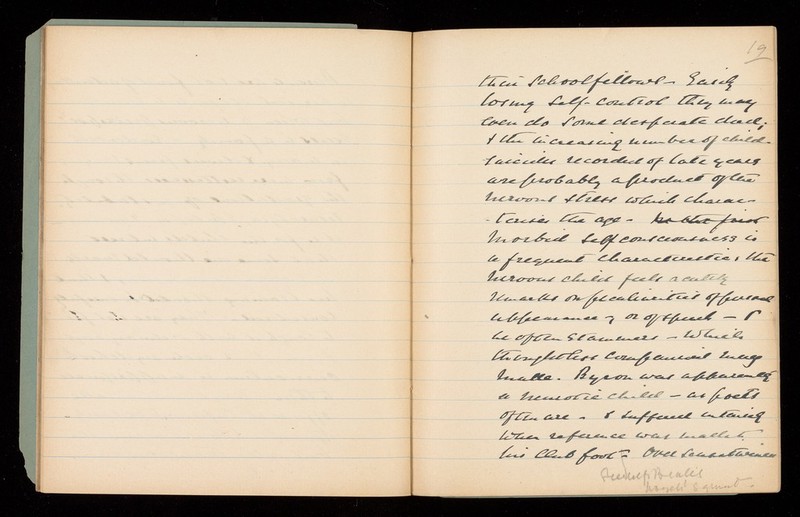 19
their Schoolfellows – Easily
losing Self-control they may
even do some desperate deed;
& the increasing number of child-
suicides recorded of late years
are probably a product of the
nervous stress which charac-
-terises the age –
Morbid Self consciousness is
a frequent characteristic; the
nervous child feels acutely
remarks on peculiarities of personal
appearance, or of speech – &
he often stammers – which
thoughtless companions may
make. Byron was apparently
a neurotic child – as poets
often are – & suffered intensely
when reference was made to
his Club foot – Over sensitiveness